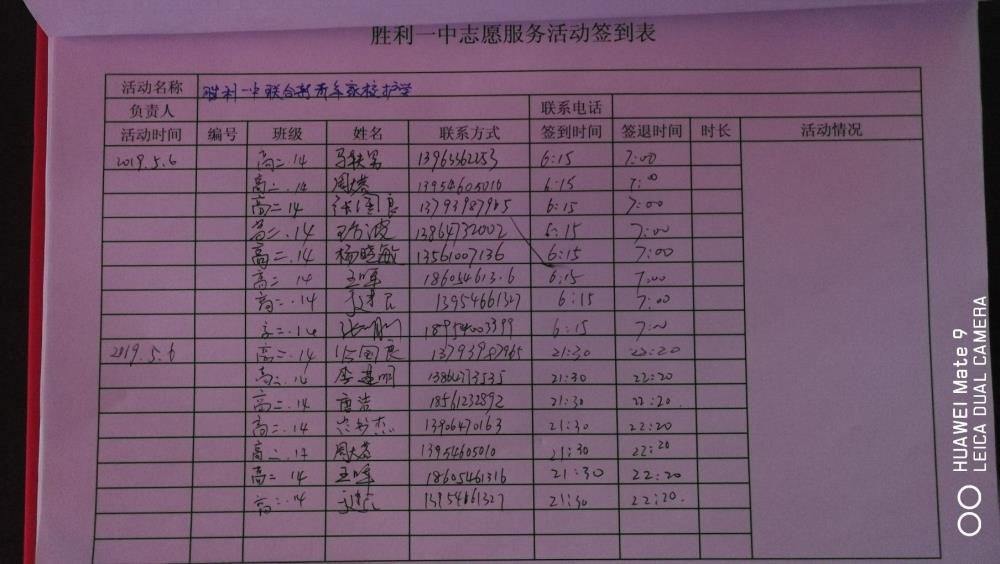 胜利一中志愿服务活动签到表
活动名称 胜利一中联合 家校护学
负责人 联系电话
活动时间 编号 班级 姓名 联系方式 签到时间 签退时间 时长 活动情况
2019.5.6 高二.14 马铁男 13963362253 6:15 7:00
高二.14 13954605010 6:15 7:00
高二14 张国良 13793987965 6:15 7:00
高二.14 13864732002 6:15 7:00
高二.14 杨晓敏 13561007136 6:15 7:00
高二.14 王晖 6:15 7:00
高二.14 13954661327 6:15 7:00
高二.14 18954003399 6:15 7:00
2019.5.6 高二.14 张国良 13793987965 21:30 22:20
高二.14 李建明 21:30 22:20
高二.14 唐浩 18561232892 21:30 22:20.
高二.14 13906470163 21:30 22:20
高二.14 13954605010 21:30 22:20
高二 14 王晖 18605461316 21:30 22:20
高二.14 13954661327 21:30 22:20.
HUAWEI Mate 9
LEICA DUAL CAMERA